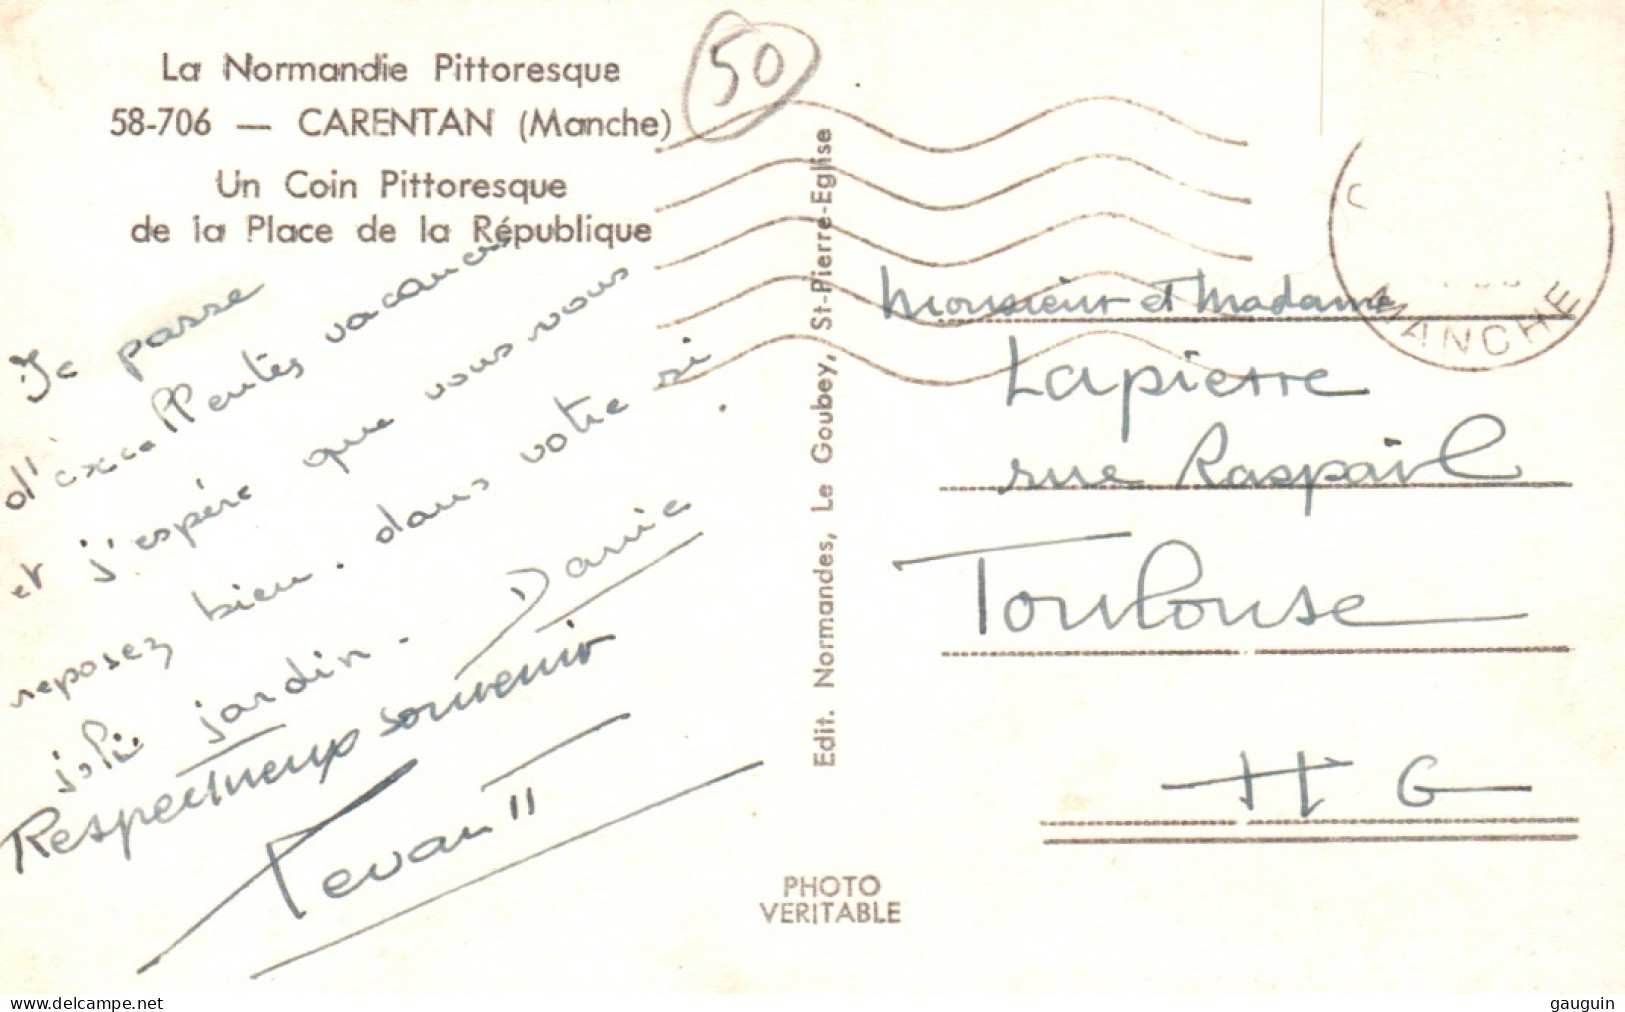 La Normandie Pittoresque
58-706 — CARENTAN (Manche)
Un Coin Pittoresque
de la Place de la République
50
Je passe
d'excellentes vacances
et j'espère que vous vous
reposez bien. dans votre si
joli jardin. Danie
Respectueux souvenir
Edit. Normandes, Le Goubey, St-Pierre-Eglise
PHOTO
VERITABLE
MANCHE
Monsieur et Madame
Lapierre
rue Raspail
Toulouse
H G
www.delcampe.net
gauguin